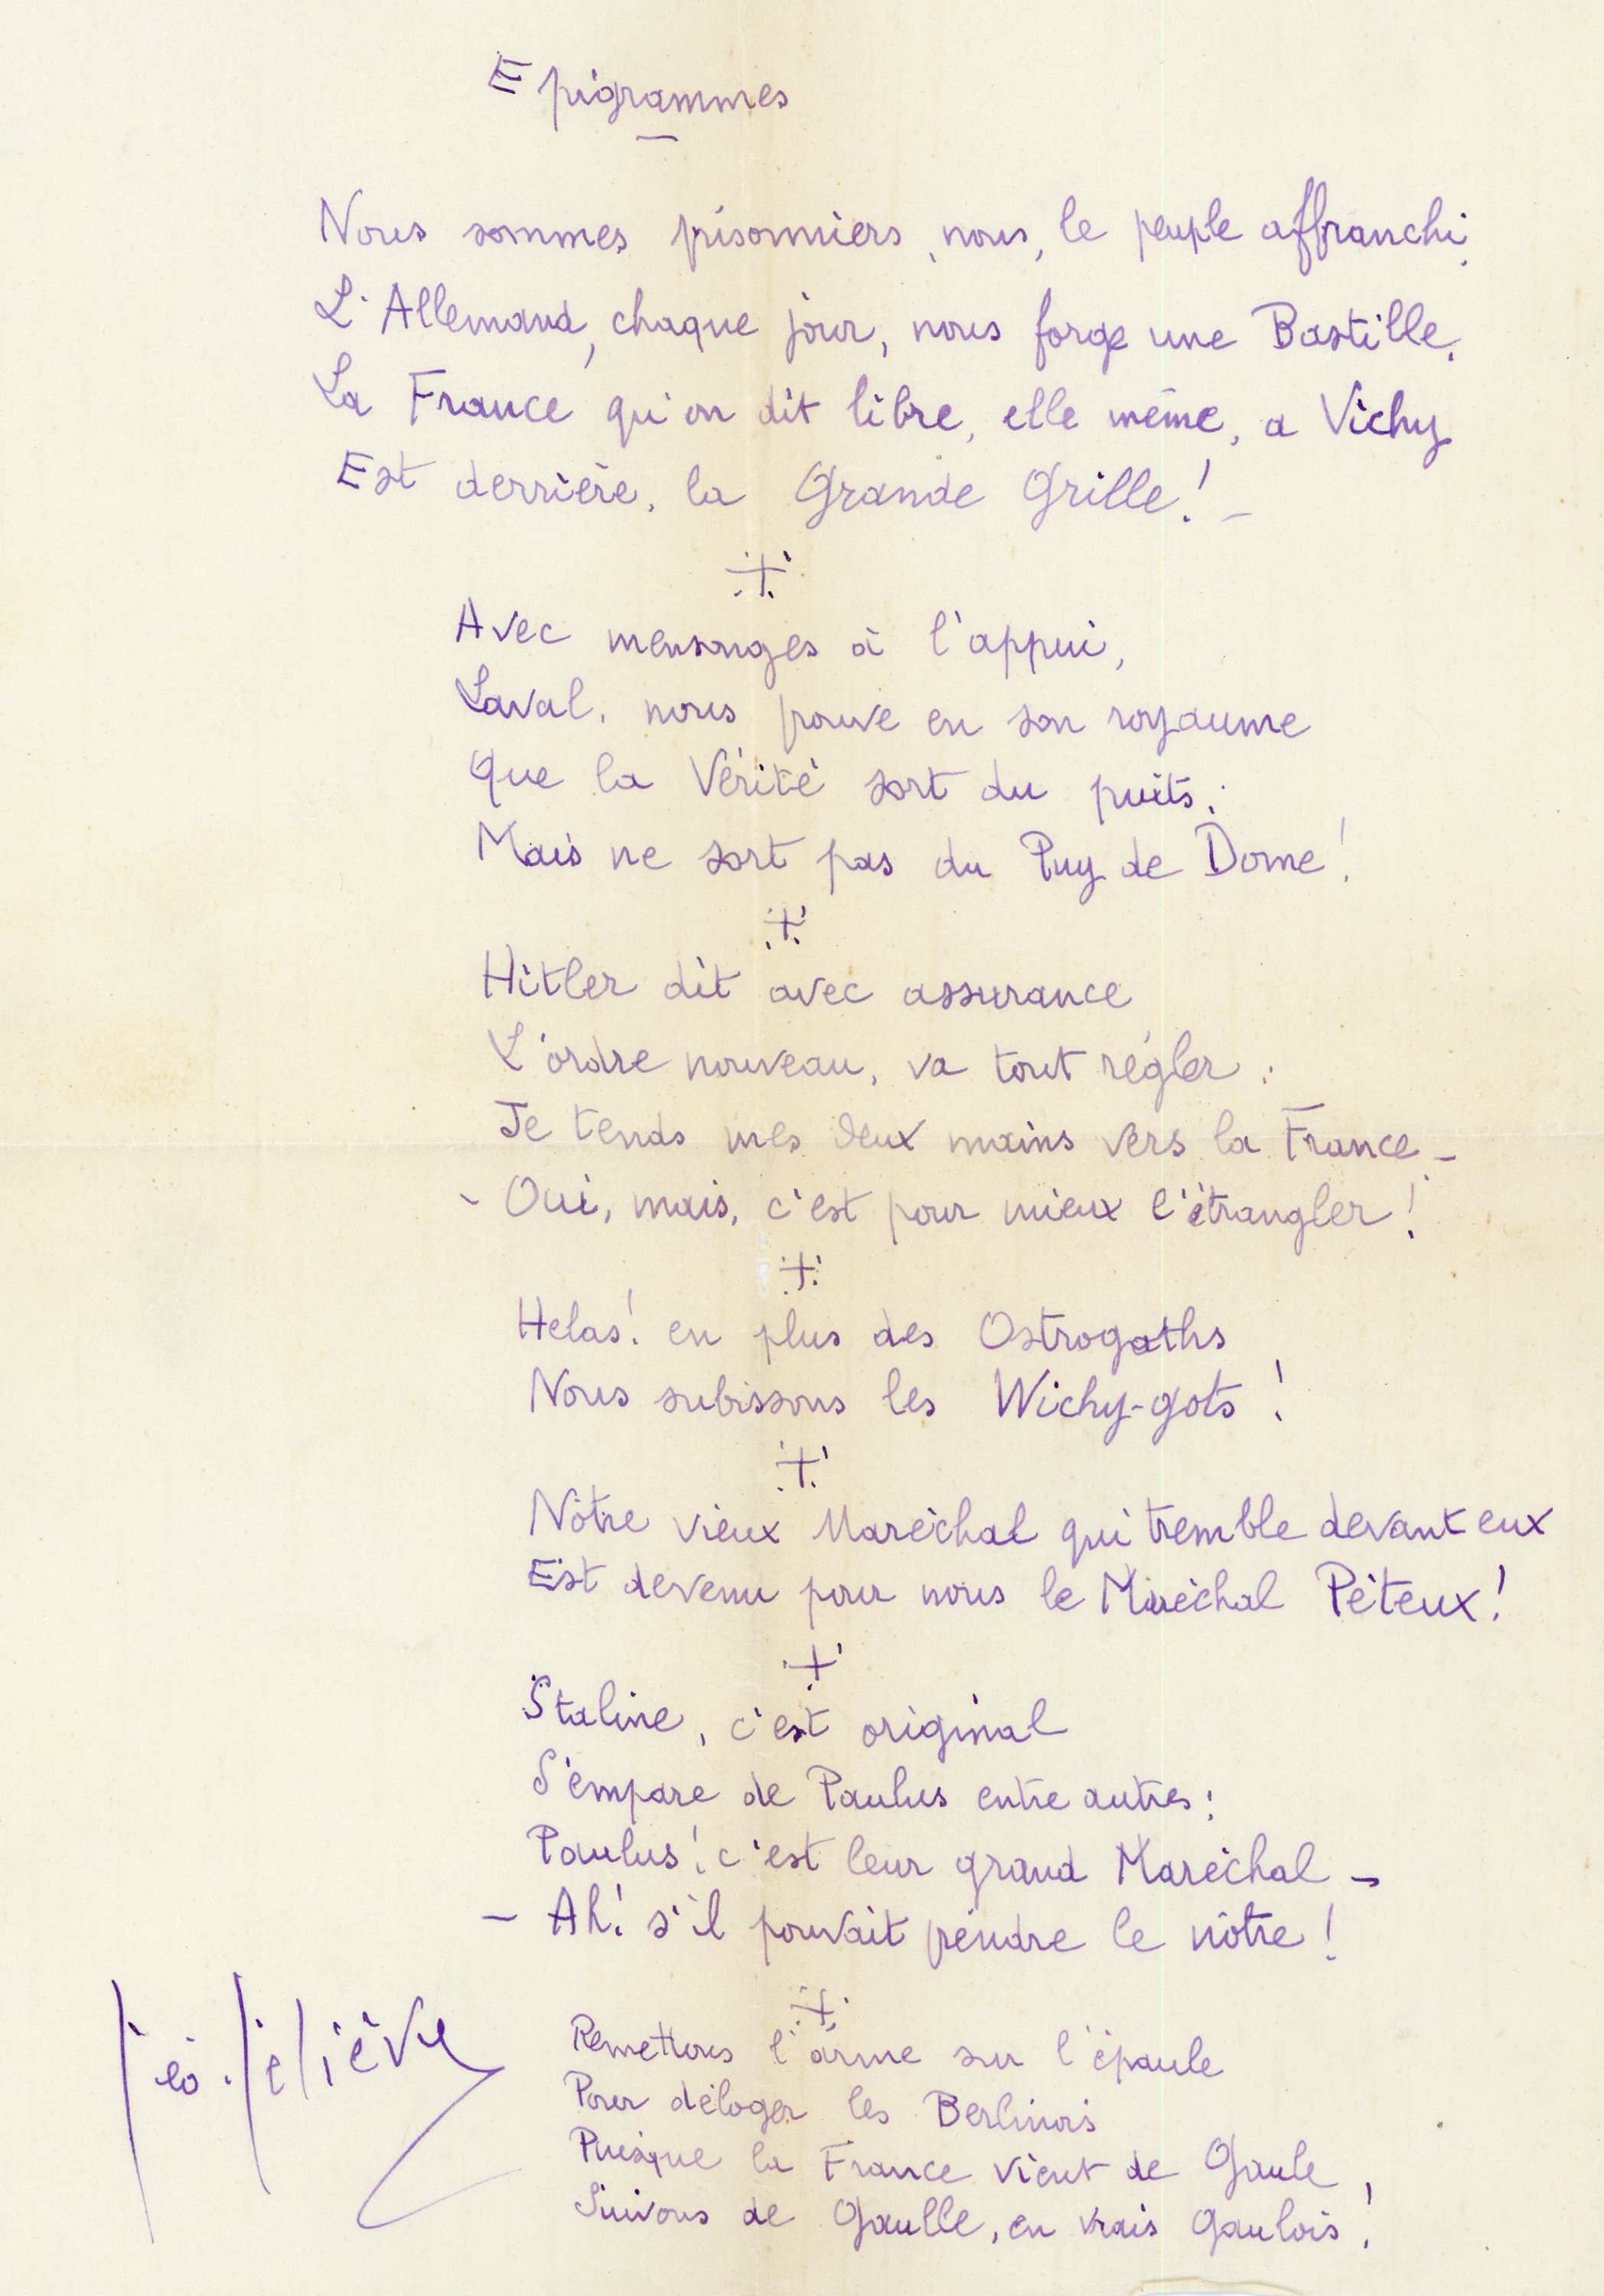 Epigrammes
Nous sommes prisonniers, nous, le peuple affranchi.
L'Allemand, chaque jour, nous forge une Bastille.
La France qu'on dit libre, elle même, a Vichy
Est derrière, la Grande Grille! -
Avec mensonges à l'appui,
Laval, nous prouve en son royaume
Que la Vérité sort du puits.
Mais ne sort pas du Puy de Dome!
Hitler dit avec assurance
L'ordre nouveau, va tout régler :
Je tends mes deux mains vers la France -
- Oui, mais, c'est pour mieux l'étrangler!
Helas! en plus des Ostrogoths
Nous subissons les Wichy-gots!
Nôtre vieux Maréchal qui tremble devant eux
Est devenu pour nous le Maréchal Péteux!
Staline, c'est original
S'empare de Paulus entre autres :
Paulus! c'est leur grand Maréchal -
- Ah! s'il pouvait prendre le nôtre!
Remettons l'arme sur l'épaule
Pour déloger les Berlinois
Puisque la France vient de Gaule,
Suivons de Gaulle, en vrais Gaulois!